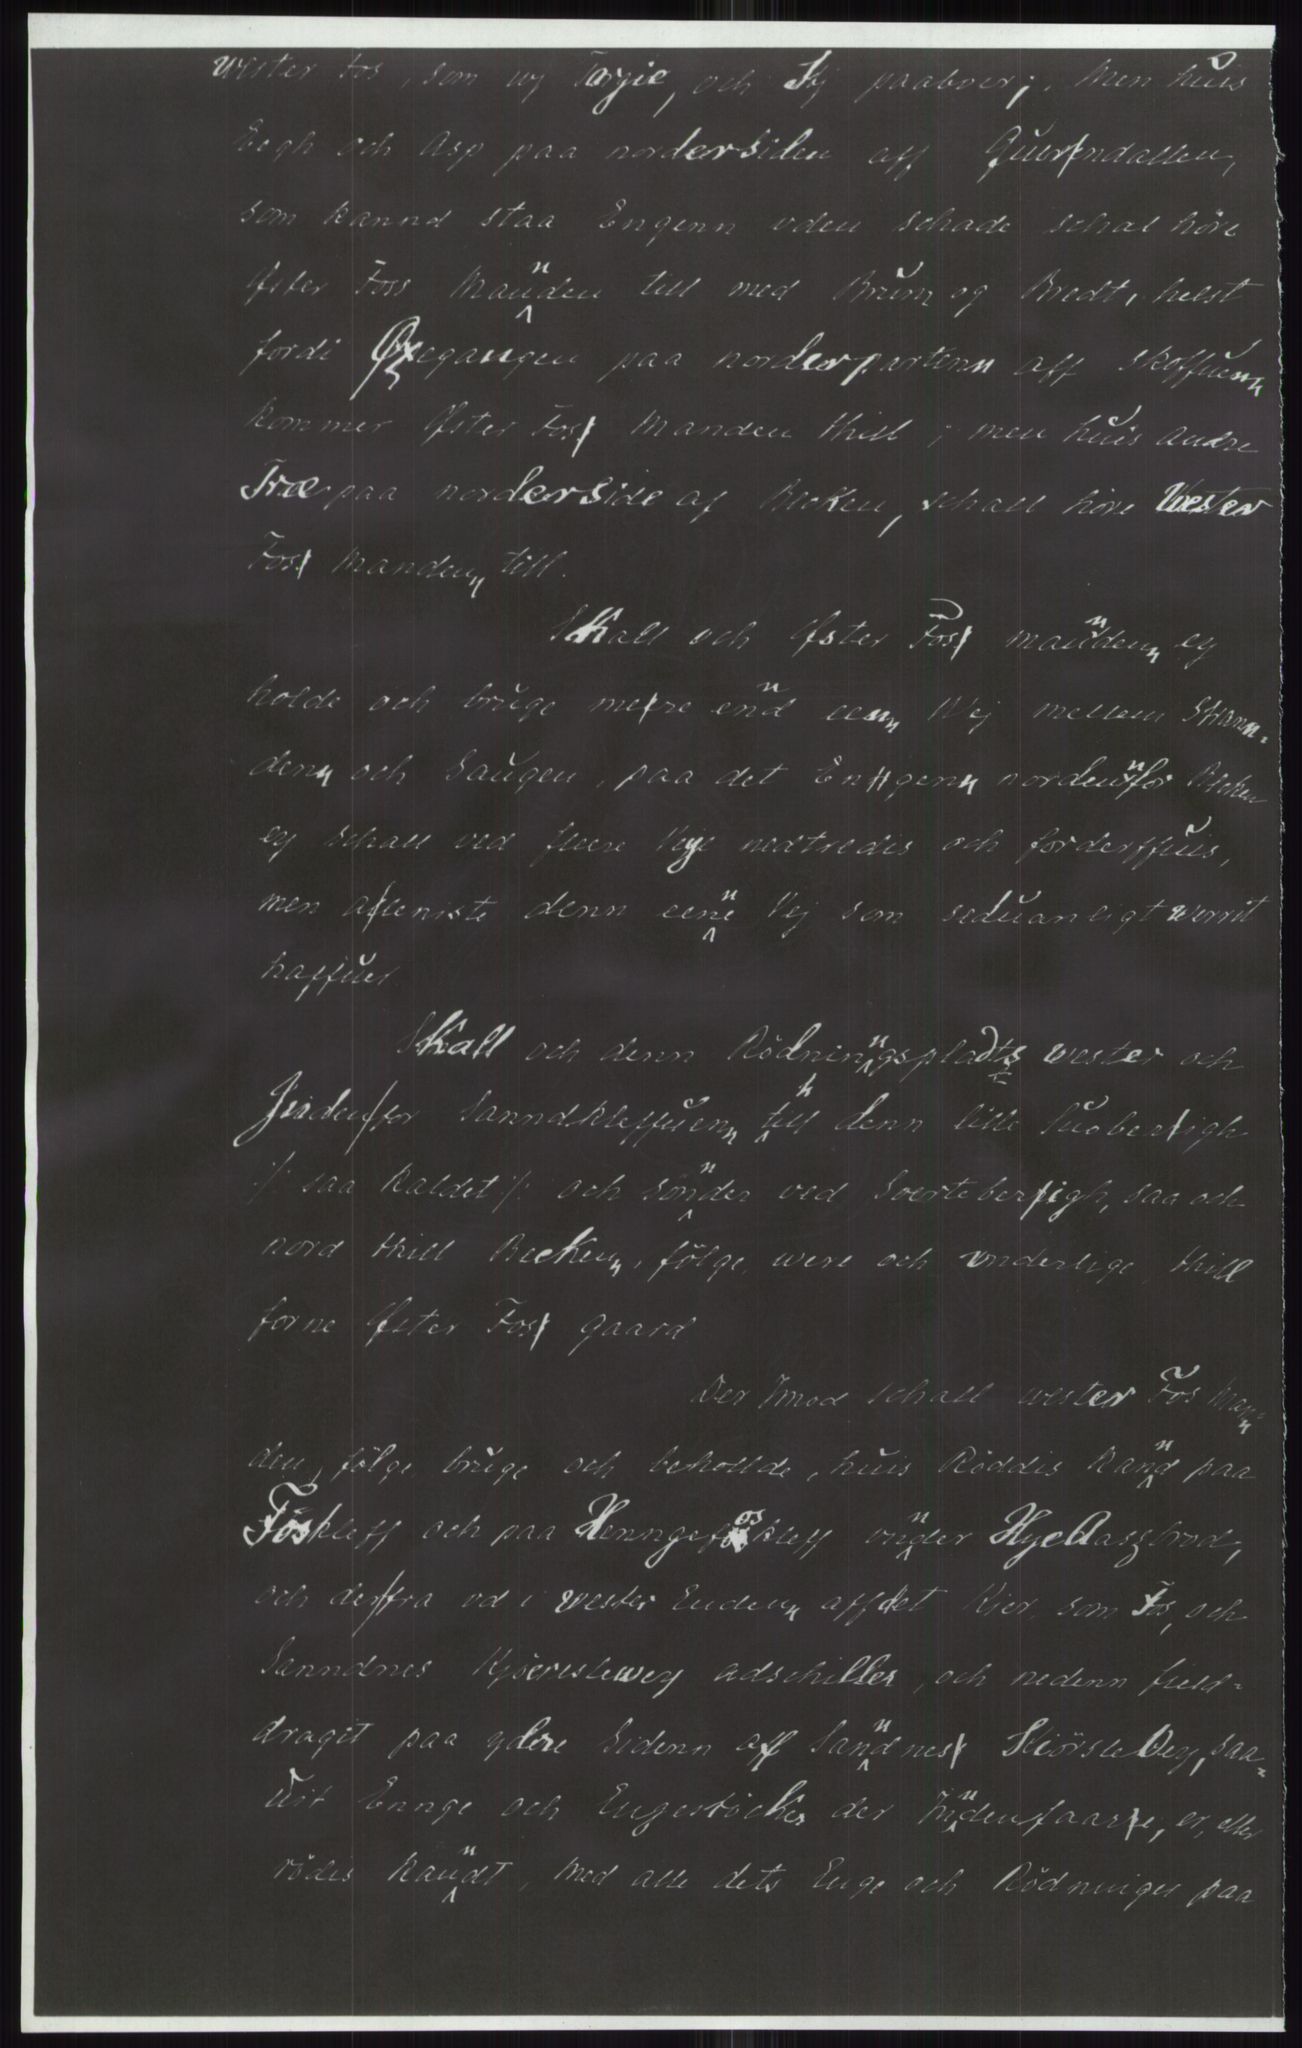 wester fos, som vj Torgie, och Sij paaboer; Men huis
Eegh och Asp paa nordersiden aff Querndallen,
som kannd staa Engenn vden schade schal höre
Øster Foss Mannden till med Brum og Bredt, helst
fordi Øxegangen paa norderpartenn aff skoffuenn
kommer Øster Foss Manden thill; men huis andre
Træ paa norderside af Becken, schall höre Wester
Foss Mandenn till.
Skall och Øster Foss manndenn ey
holde och bruge mere ennd eenn Vej mellem Strann-
denn och Saugen, paa det Engenn nordennfor Becken
ey schall ved flere Veye nedtredis och forderffuis,
men alleniste denn eene Vej som seduanligt werrit
haffuer.
Skall och denn Rödninngspladts wester och
Jnden for Sanndkleffuenn till denn lille Huabersigh
/: saa kaldet :/ och Sönnder ved Soertebersigh, saa och
nord thill Beckenn, fölge, were och vnderlige, thill
forne Øster Foss gaard
Der Jmod schall wester Fos Mann-
den, fölge, bruge och behollde, huis Röddis kannd paa
Föskleff och paa Henngefoskleff vnnder Hyellaaszbrod,
och derfra vd i wester Endenn aff det Kier, som Fos, och
Sanndnes Kjöerslewey adschilles, och nedenn field-
dragit paa ydere Sidenn af Sanndness Kiörsle Vey, saa-
uit Ennge och Engestöcker der Jnnden faare, er, eller
rödis kanndt, med alle dets Enge och Rödninger paa